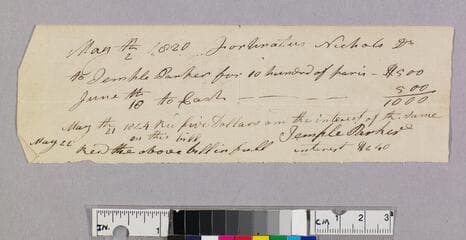 May th/2 1820 Fortunatus Nichols Dr
to Temple Parker for 10 hundred of paris - $5 00
June th/10 to Cash - - - - 5 00
10 00
May th/21 1824 Rec five Dollars on the interest of the same
on this bill
May 22 Recd the above bill in full Temple Parker
interest $2 40
IN. 1 CM 1 2 3